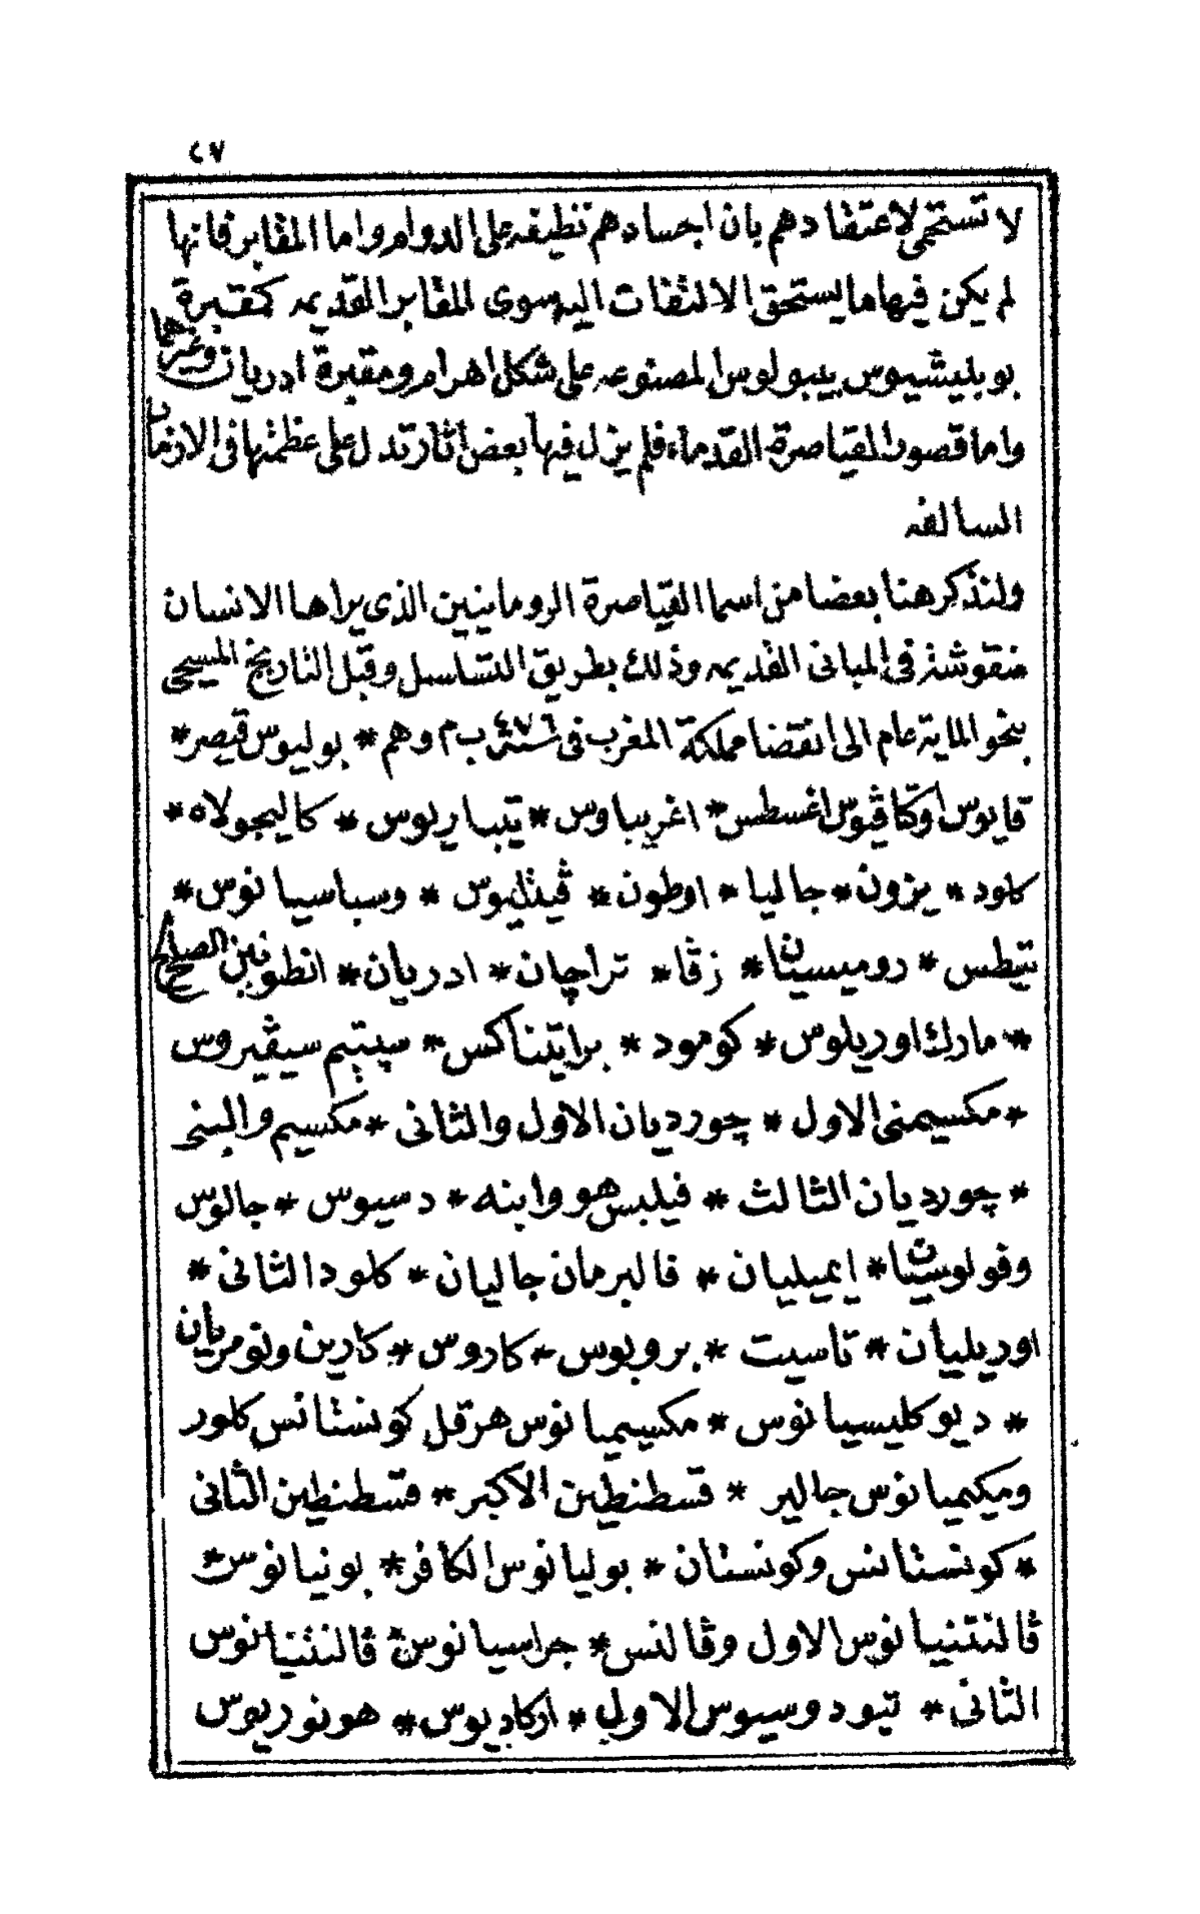 ٢٧
لا تستحمى لاعتقادهم بان اجسادهم نظيفه على الدوام واما المقابر فانها
لم يكن فيها ما يستحق الالتفات اليه سوى المقابر القديمه كمقبرة
بوبليشيوس بيبولوس المصنوعه على شكل اهرام ومقبرة ادريان وغيرهما
واما قصور القياصرة القدماء فلم يزل فيها بعض آثار تدل على عظمتها فى الازمان
السالفه
ولنذكر هنا بعضا من اسما القياصرة الرومانيين الذى يراها الانسان
منقوشة فى المبانى القديمه وذلك بطريق التسلسل وقبل التاريخ المسيحى
بنحو الماية عام الى انقضا مملكة المغرب فى سنة ٤٧٦ ب م وهم * بوليوس قيصر *
قايوس اوكتاڤيوس اغسطس * اغريباوس * تيباريوس * كاليجولاه *
كلود * نيرون * جالبا * اوطون * ڤيتليوس * وسباسيانوس *
تيطس * دوميسيان * نرڤا * تراچان * ادريان * انطونين الصالح
* مارك اوريلوس * كومود * برايتناكس * سپتيم سيڤيروس
* مكسيمنى الاول * چورديان الاول والثانى * مكسيم والبنى
* چورديان الثالث * فيلبس هو وابنه * دسيوس * جالوس
وڤولوسيان * ايميليان * ڤالبرمان جاليان * كلود الثانى *
اوريليان * تاسيت * بروبوس * كاروس * كارين ونومريان
* ديوكليسيانوس * مكسيميانوس هرقل كونستانس كلور
ومكيميانوس جالير * قسطنطين الاكبر * قسطنطين الثانى
* كونستانس وكونستان * بوليانوس الكافر * بونيانوس *
ڤالنتنيانوس الاول وڤالنس * جراسيانوس * ڤالنتنيانوس
الثانى * تيودوسيوس الاول * اركاديوس * هونوريوس